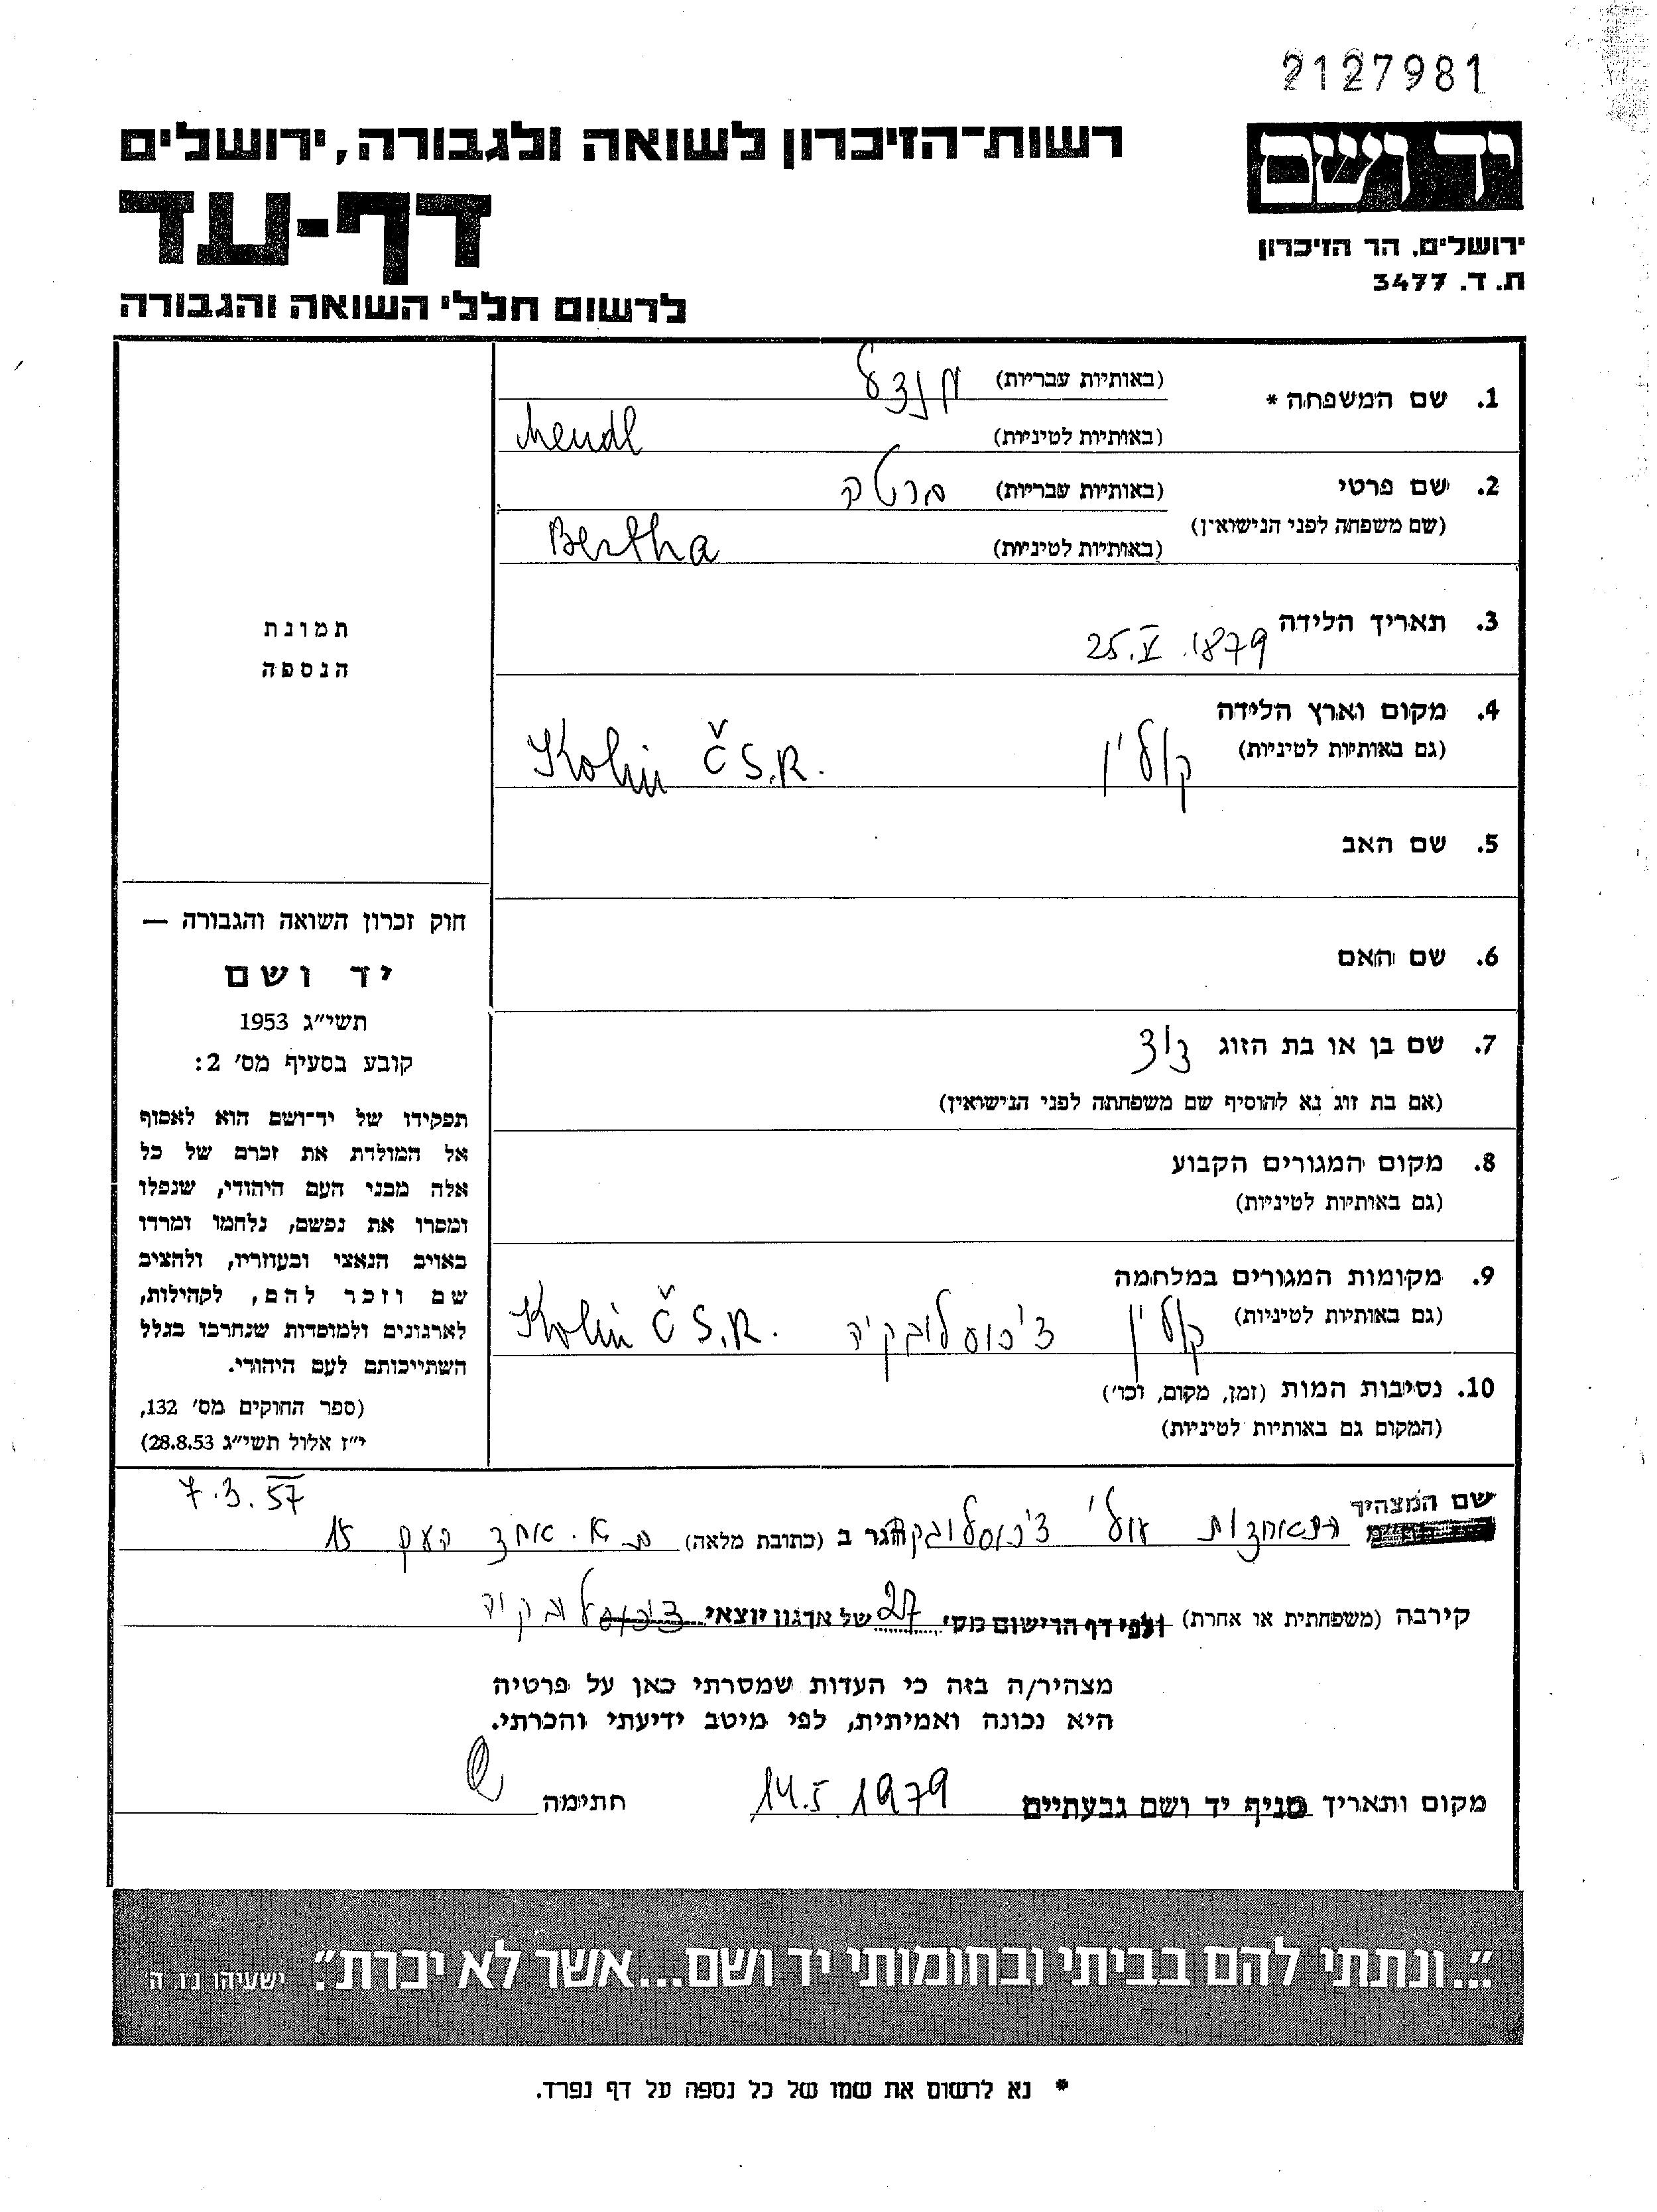 2127981
יד ושם
ירושלים, הר הזיכרון
ת. ד. 3477
רשות־הזיכרון לשואה ולגבורה, ירושלים
דף-עד
לרשום חללי השואה והגבורה
1. שם המשפחה * (באותיות עבריות) מנדל
(באותיות לטיניות) Mendl
2. שם פרטי (באותיות עבריות) ברטה
(שם משפחה לפני הנישואין)
(באותיות לטיניות) Bertha
3. תאריך הלידה 25.V.1879
4. מקום וארץ הלידה
(גם באותיות לטיניות) קולין Kolin Č.S.R.
5. שם האב
6. שם האם
7. שם בן או בת הזוג דוד
(אם בת זוג נא להוסיף שם משפחתה לפני הנישואין)
8. מקום המגורים הקבוע
(גם באותיות לטיניות)
9. מקומות המגורים במלחמה
(גם באותיות לטיניות) קולין צ'כוסלובקיה Kolin Č.S.R.
10. נסיבות המות (זמן, מקום, וכו')
(המקום גם באותיות לטיניות)
תמונת
הנספה
חוק זכרון השואה והגבורה —
יד ושם
תשי״ג 1953
קובע בסעיף מס' 2:
תפקידו של יד־ושם הוא לאסוף
אל המולדת את זכרם של כל
אלה מבני העם היהודי, שנפלו
ומסרו את נפשם, נלחמו ומרדו
באויב הנאצי ובעוזריו, ולהציב
שם וזכר להם, לקהילות,
לארגונים ולמוסדות שנחרבו בגלל
השתייכותם לעם היהודי.
(ספר החוקים מס' 132,
י״ז אלול תשי״ג 28.8.53)
7.3.57
שם המצהיר התאחדות עולי צ'כוסלובקיה הגר ב (כתובת מלאה) ת.א. אחד העם 15
קירבה (משפחתית או אחרת) ולפי דף הרישום מס' 27 של ארגון יוצאי צ'כוסלובקיה
מצהיר/ה בזה כי העדות שמסרתי כאן על פרטיה
היא נכונה ואמיתית, לפי מיטב ידיעתי והכרתי.
מקום ותאריך סניף יד ושם גבעתיים 14.5.1979 חתימה
״...ונתתי להם בביתי ובחומותי יד ושם...אשר לא יכרת״. ישעיהו נו ה'
* נא לרשום את שמו של כל נספה על דף נפרד.